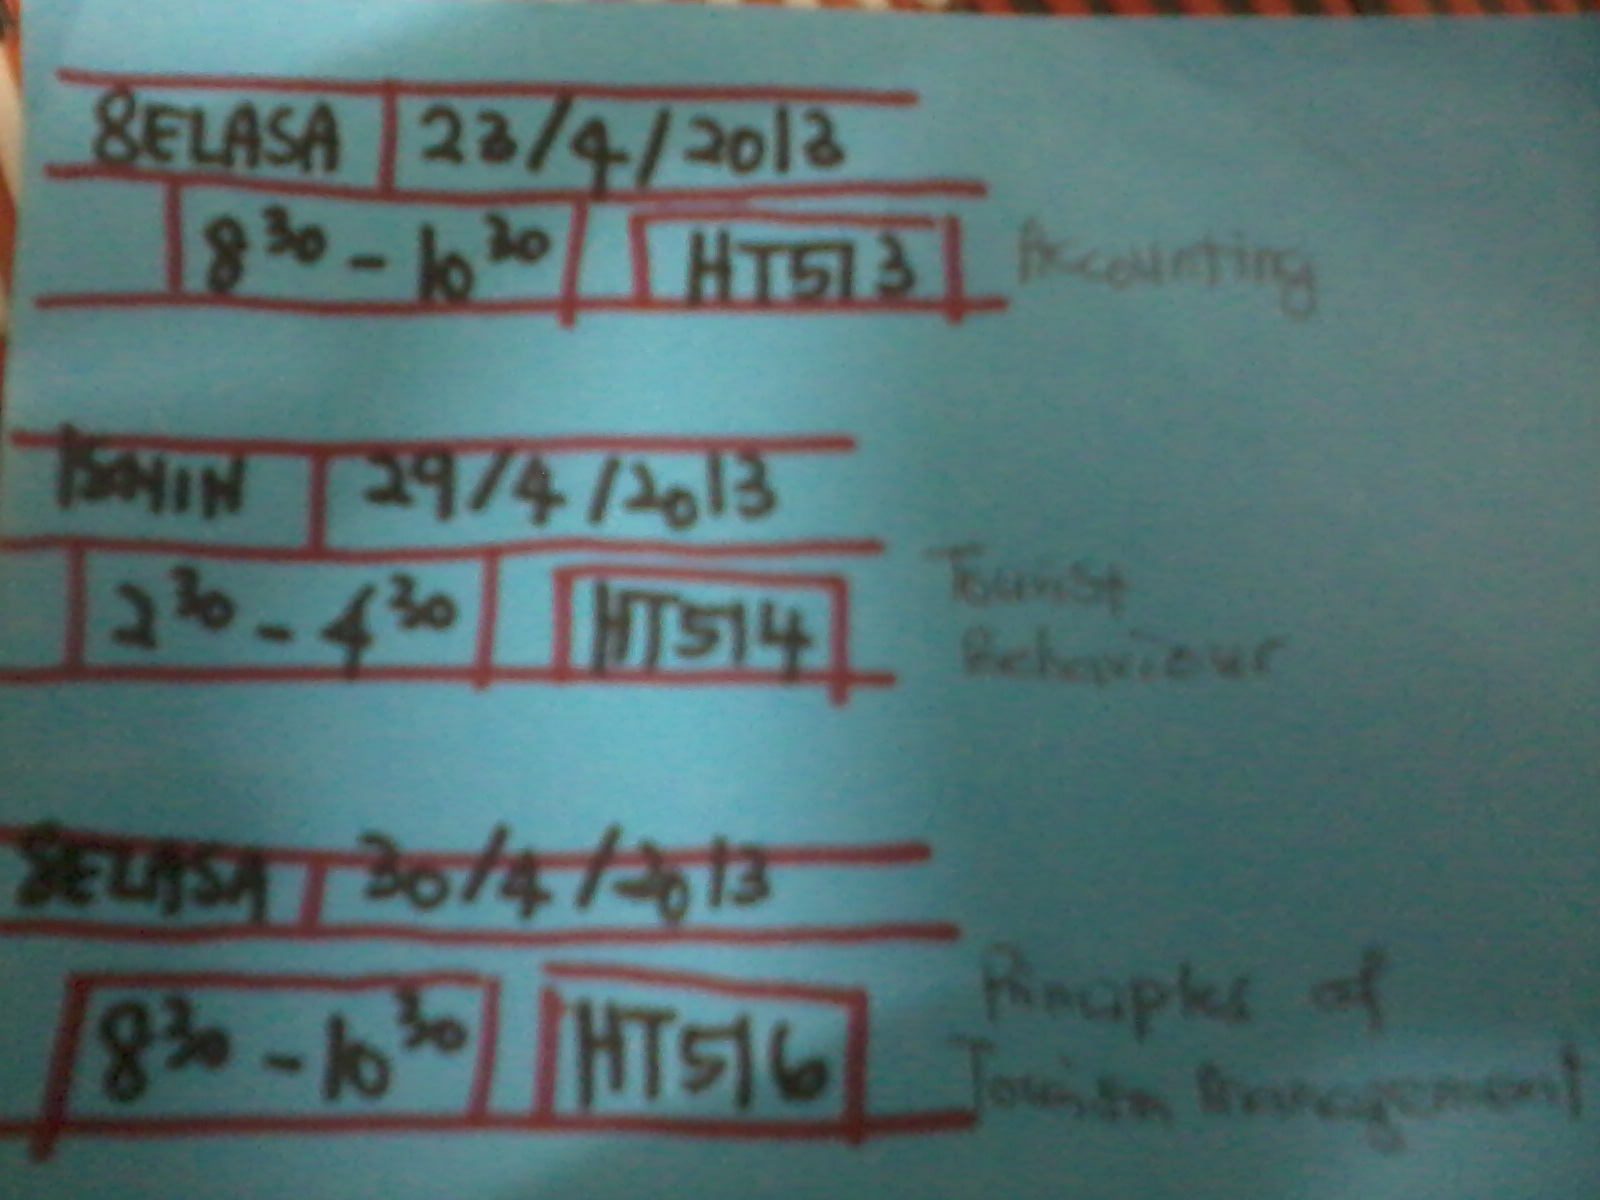 SELASA 23/4/2013
8³⁰ - 10³⁰ HT513 Accounting
ISNIN 29/4/2013
2³⁰ - 4³⁰ HT514 Tourist
Behaviour
SELASA 30/4/2013
8³⁰ - 10³⁰ HT516 Principles of
Tourism Management